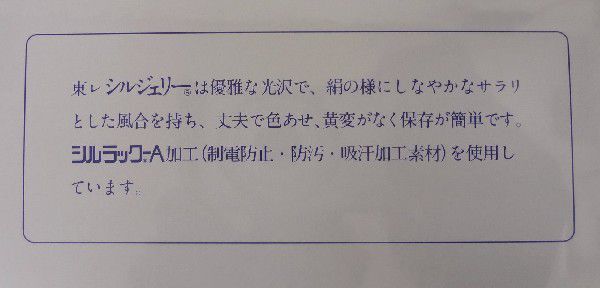 東レシルジェリー®は優雅な光沢で、絹の様にしなやかなサラリ
とした風合を持ち、丈夫で色あせ、黄変がなく保存が簡単です。
シルラック-A加工(制電防止・防汚・吸汗加工素材)を使用し
ています。